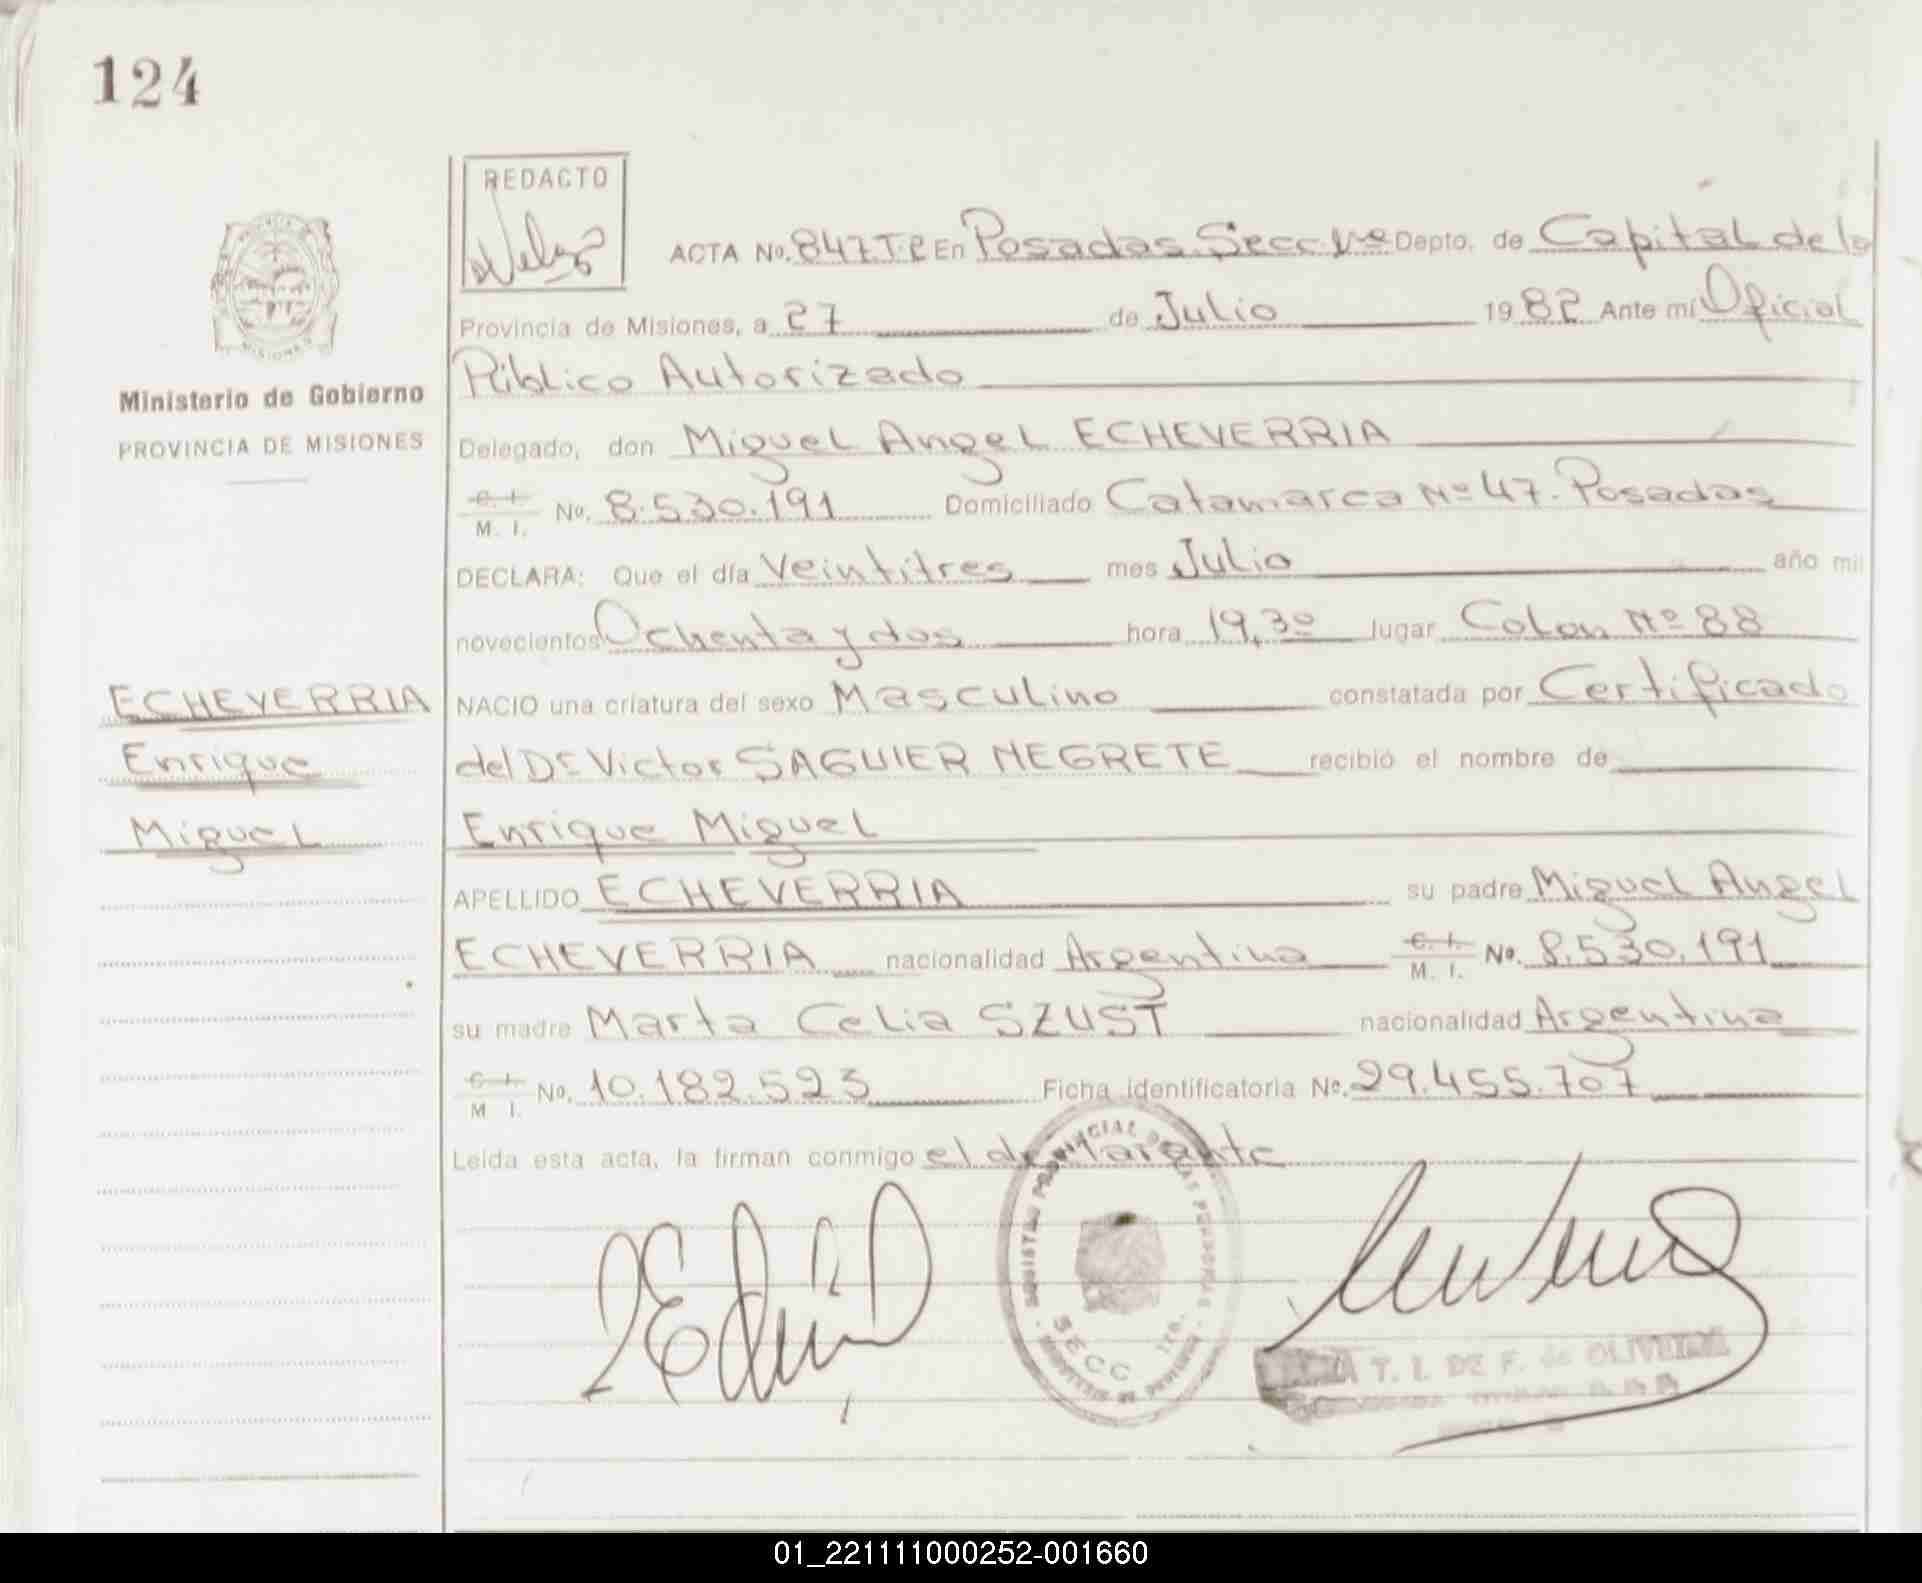 124
REDACTO
ACTA No. 847.T.2 En Posadas. Secc. 1ra Depto. de Capital de la
Provincia de Misiones, a 27 de Julio 1982 Ante mí Oficial
Público Autorizado
MISIONES
Ministerio de Gobierno
PROVINCIA DE MISIONES
Delegado, don Miguel Angel ECHEVERRIA
C. I.
M. I. No. 8.530.191 Domiciliado Catamarca Nº 47. Posadas
DECLARA: Que el día Veintitres mes Julio año mil
novecientos Ochenta y dos hora 19,30 lugar Colon Nº 88
ECHEVERRIA
Enrique
Miguel
NACIO una criatura del sexo Masculino constatada por Certificado
del Dr Victor SAGUIER NEGRETE recibió el nombre de
Enrique Miguel
APELLIDO ECHEVERRIA su padre Miguel Angel
ECHEVERRIA nacionalidad Argentina C. I. M. I. No. 8.530.191
su madre Marta Celia SZUST nacionalidad Argentina
C. I.
M I. No. 10.182.523 Ficha identificatoria No. 29.455.707
Leída esta acta, la firman conmigo el declarante
SECC 1ra.
T. I. DE F. de OLIVEIRA
01_221111000252-001660